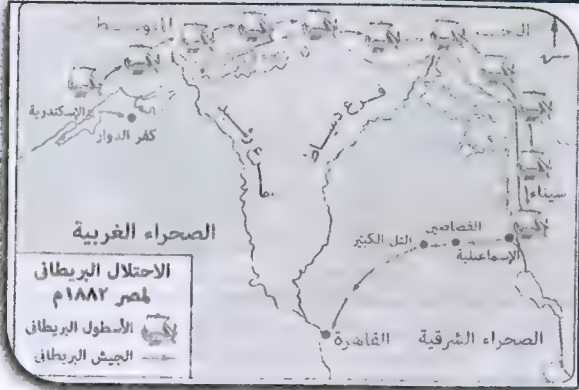 البحر المتوسط
الإسكندرية
كفر الدوار
فرع رشيد
فرع دمياط
سيناء
القصاصين
التل الكبير
الإسماعيلية
الصحراء الغربية
القاهرة
الصحراء الشرقية
الاحتلال البريطانى
لمصر ١٨٨٢م
الأسطول البريطانى
الجيش البريطانى